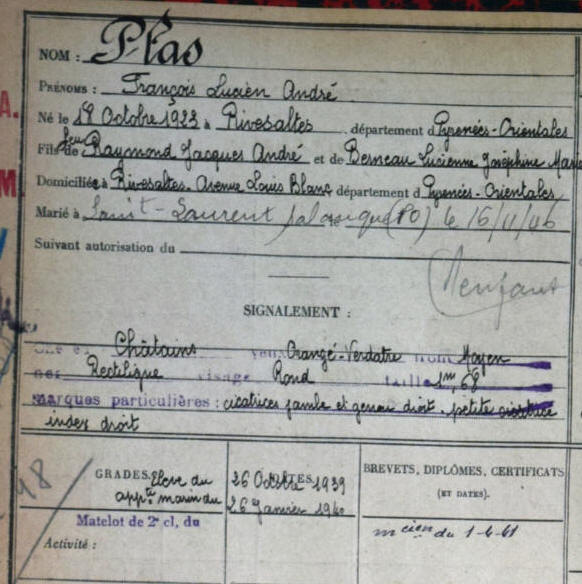 A.
M
NOM : Plas
PRÉNOMS : François Lucien André
Né le 18 Octobre 1923 à Rivesaltes département d Pyrénées-Orientales
Fils de feu Raymond Jacques André et de Berneau Lucienne Joséphine Marie
Domicilié à Rivesaltes. Avenue Louis Blanc département d Pyrénées-Orientales
Marié à Saint-Laurent Salanque (PO) le 16/11/46
Suivant autorisation du
SIGNALEMENT :
Châtains Yeux Orangé-Verdatre front Moyen
nez Rectiligne visage Rond taille 1m,68
marques particulières : cicatrices jambe et genou droit. petite cicatrice
index droit
GRADES. Eleve du 26 Octobre 1939 DATES BREVETS, DIPLÔMES, CERTIFICATS
appti marin du 26 Janvier 1940 (ET DATES).
Matelot de 2e cl, du mcien du 1-4-41
Activité :